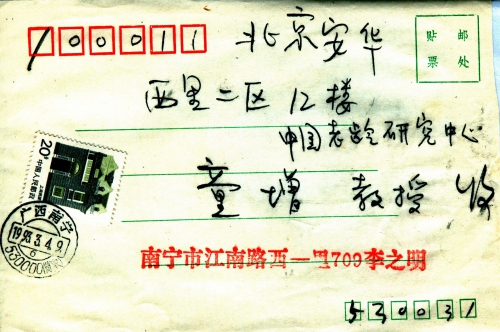 100011
北京安华
贴 邮
票 处
西里二区12楼
中国老龄研究中心
童增 教授 收
20分
中国人民邮政
广西南宁
1993.3.4.9
6
530000
南宁市江南路西一里709李之明
530031